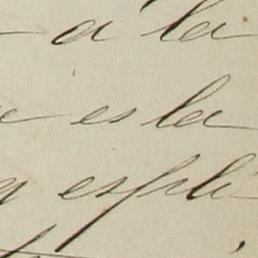 a la
es la
espli